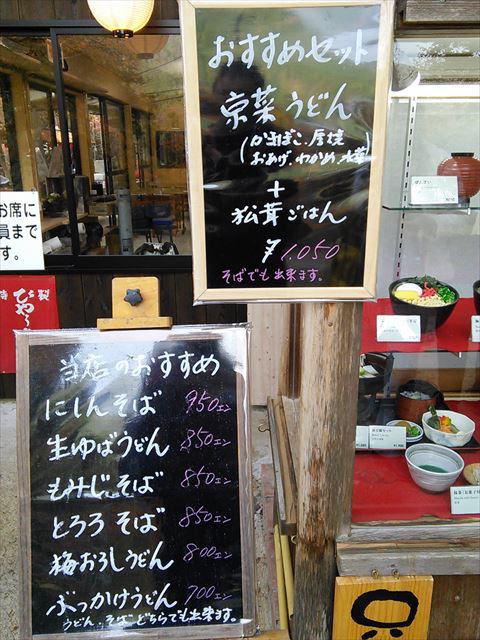 おすすめセット
京菜うどん
(かまぼこ、厚焼
おあげ、わかめ、水菜)
+
松茸ごはん
¥1,050
そばでも出来ます。
お席に
員まで
す。
当店のおすすめ
にしんそば 950エン
生ゆばうどん 850エン
もみじそば 850エン
とろろそば 850エン
梅おろしうどん 800エン
ぶっかけうどん 700エン
うどん、そばどちらでも出来ます。
ぜんざい